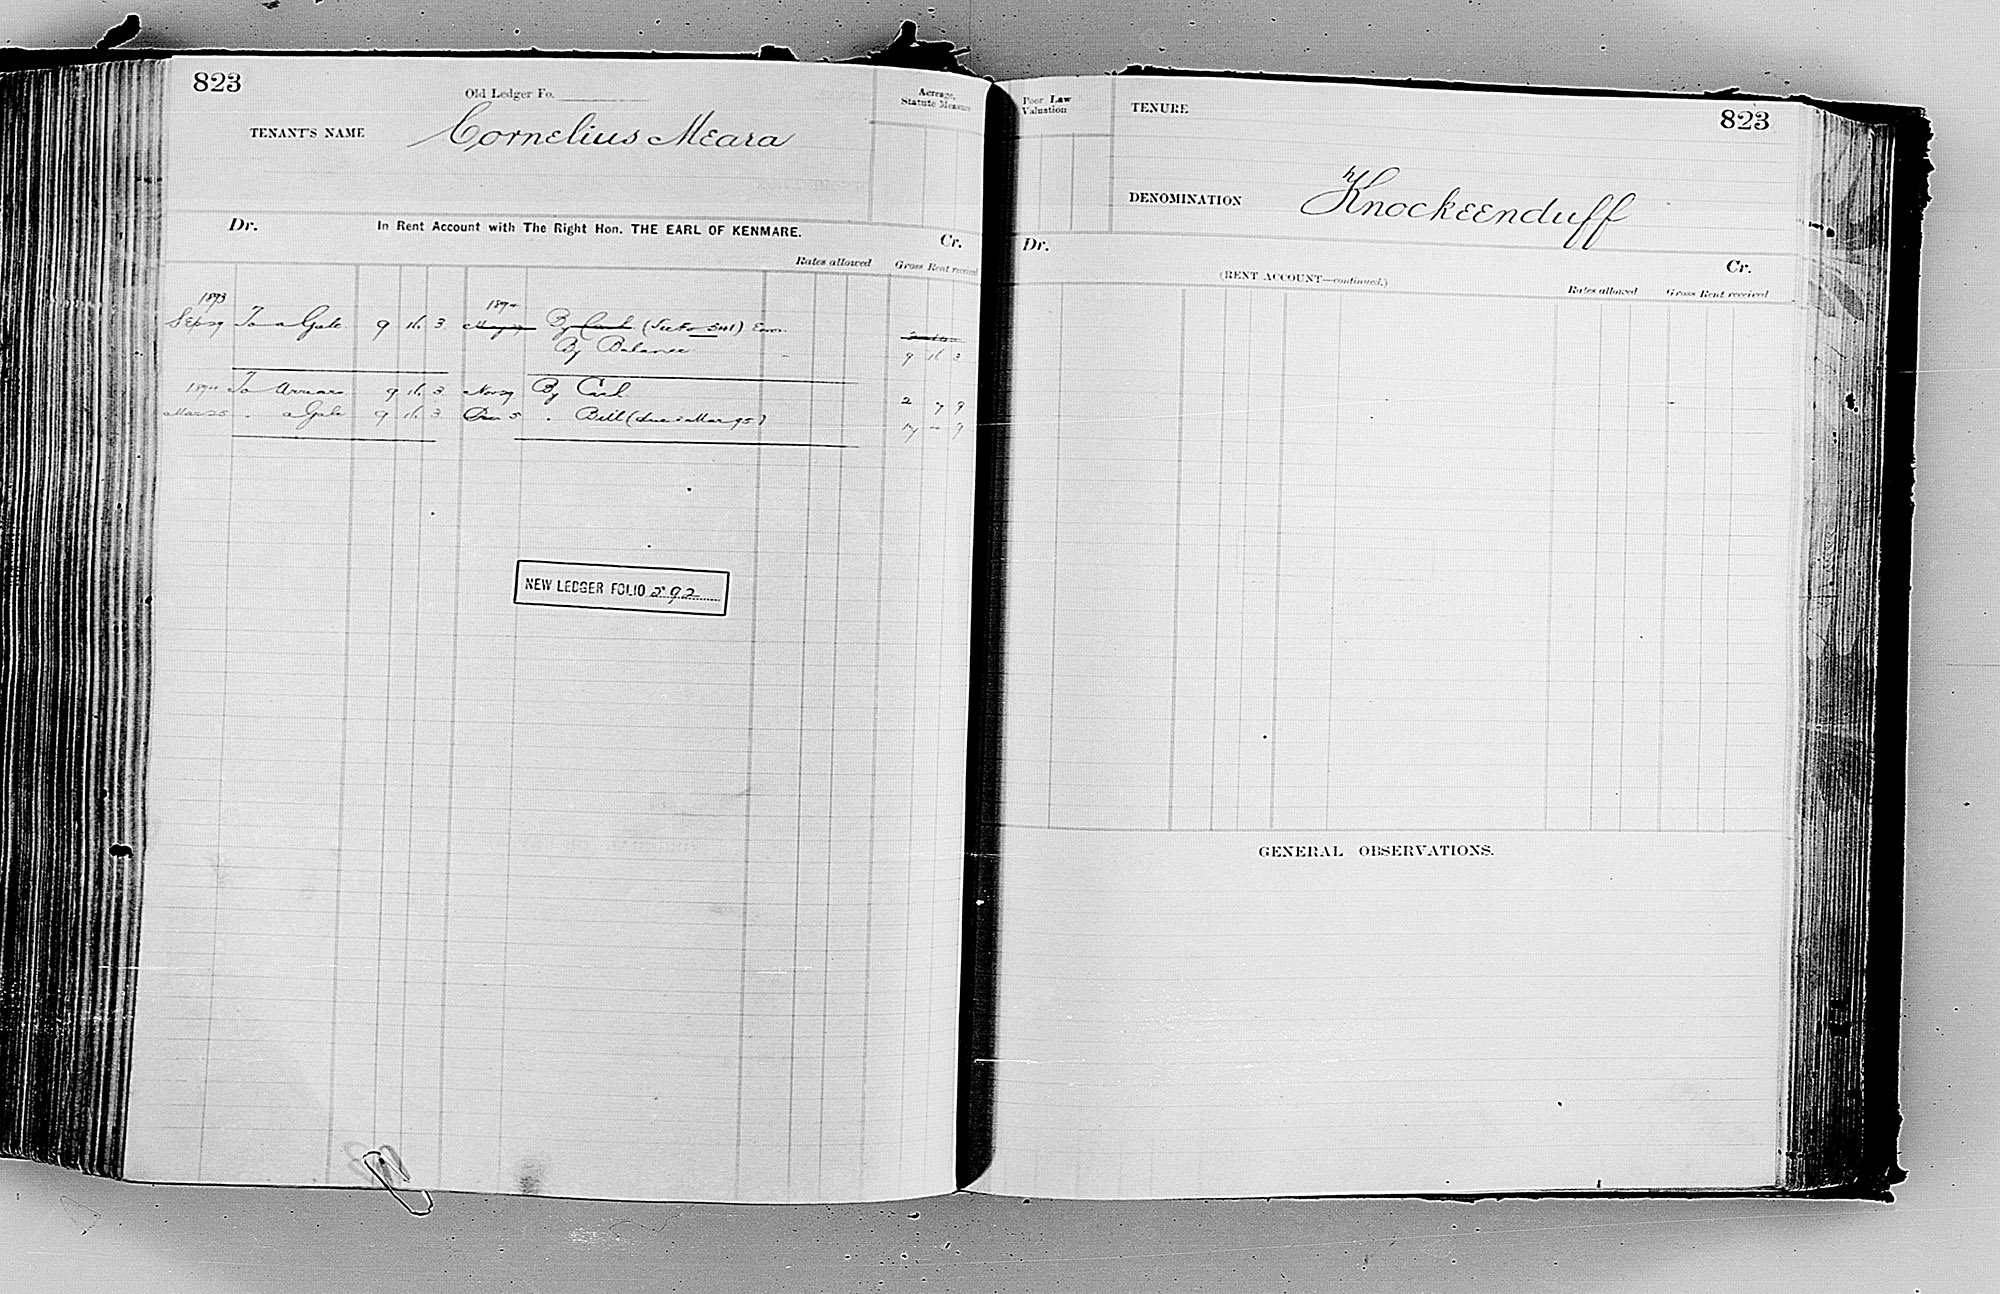 823
Old Ledger Fo.
Acreage, Statute Measure
TENANT'S NAME Cornelius Meara
Dr. In Rent Account with The Right Hon. THE EARL OF KENMARE. Cr.
Rates allowed Gross Rent received
1893 1894
Sep 29 To a Gale 9 16 3 By Cash (See Fo 541) Error
By Balance 9 16 3
1894 To Arrears 9 16 3 Nov 29 By Cash 2 7 9
Mar 25 " a Gale 9 16 3 Dec 5 " Bill (due Mar 95) 17 4 9
NEW LEDGER FOLIO 292
Poor Law Valuation
TENURE
823
DENOMINATION Knockeenduff
Dr.
Cr.
(RENT ACCOUNT—continued.)
Rates allowed Gross Rent received
GENERAL OBSERVATIONS.